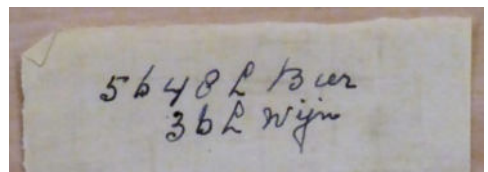 5648 L Bier
36 L Wijn